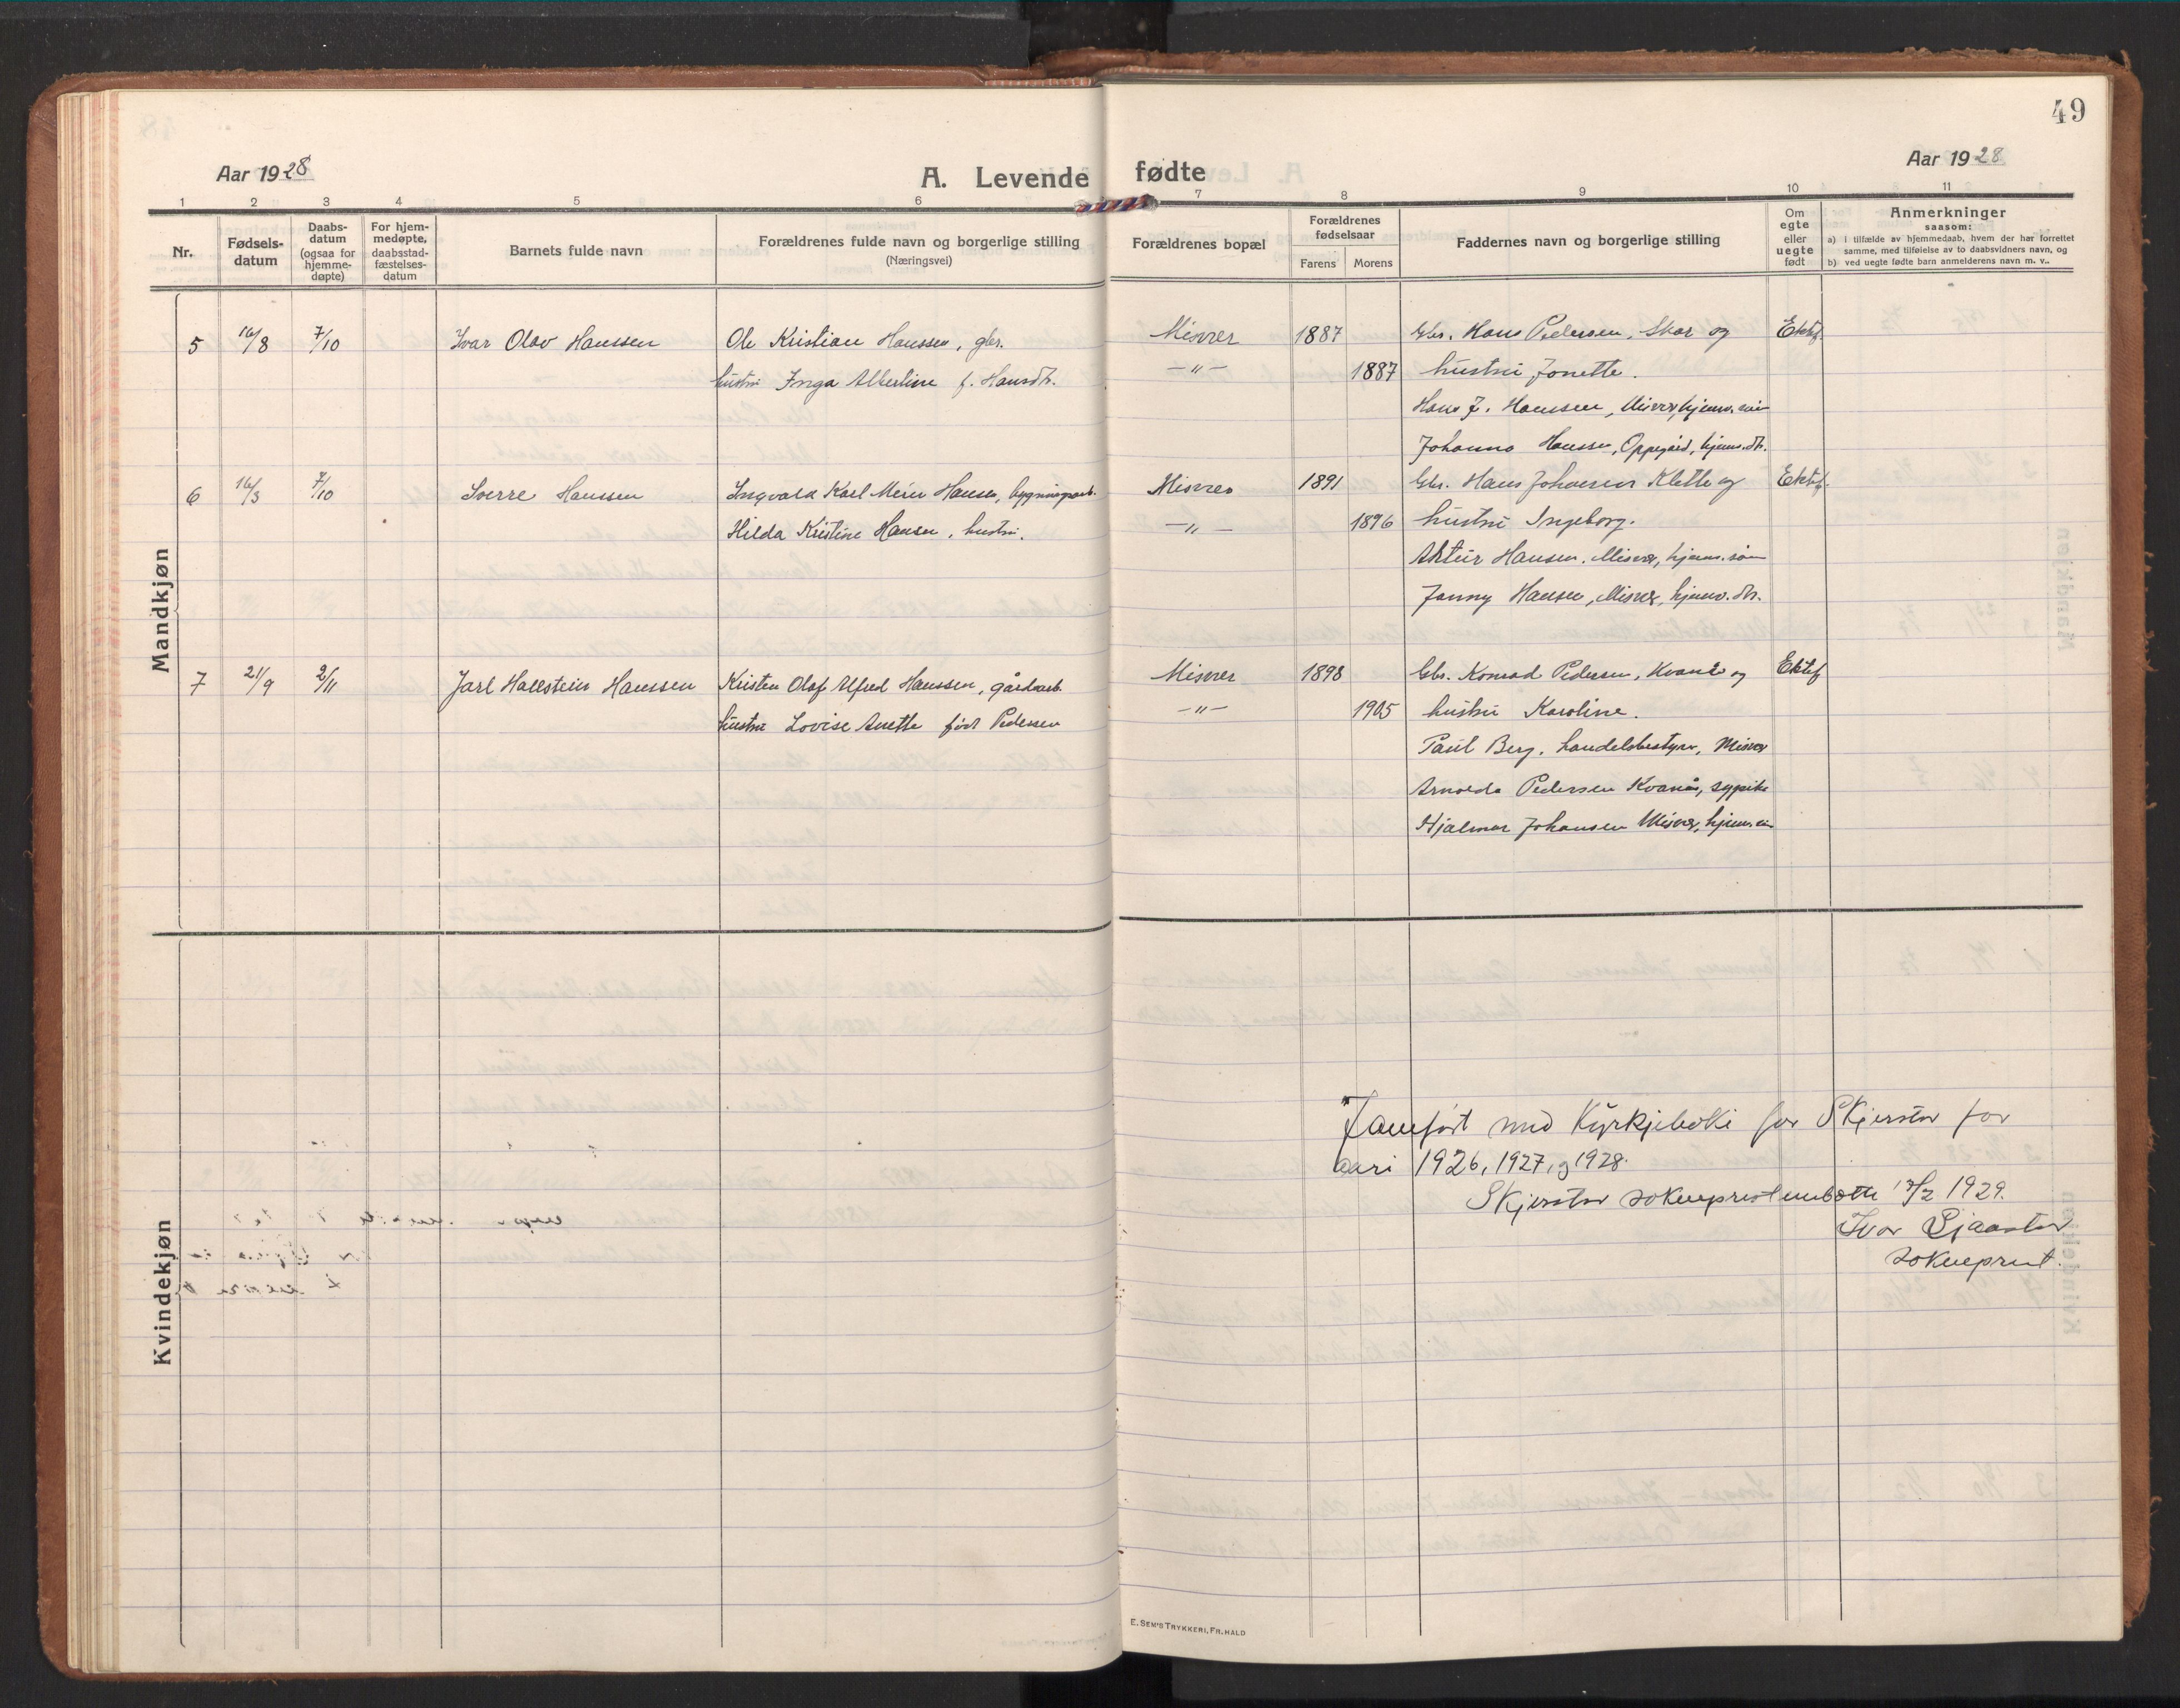 49
Aar 1928
A. Levende fødte
Aar 1928
1 2 3 4 5 6 7 8 9 10 11
Nr.
Fødsels-
datum
Daabs-
datum
(ogsaa for
hjemme-
døpte)
For hjem-
medøpte,
daabsstad-
fæstelses-
datum
Barnets fulde navn
Forældrenes fulde navn og borgerlige stilling
(Næringsvei)
Forældrenes bopæl
Forældrenes
fødselsaar
Farens Morens
Faddernes navn og borgerlige stilling
Om
egte
eller
uegte
født
Anmerkninger
saasom:
a) i tilfælde av hjemmedaab, hvem der har forrettet
samme, med tilføielse av to daabsvidners navn, og
b) ved uegte fødte barn anmelderens navn m. v..
Mandkjøn
5 16/8 7/10 Ivar Olav Hanssen Ole Kristian Hanssen, gbr. Misvær 1887 Gbr. Hans Pedersen, Skar og Ektef.
hustru Inga Albertine f. Hansdtr. —"— 1887 hustru Jonette.
Hans J. Hanssen, Misvær, hjemv. søn
Johanna Hanssen, Oppegård, hjemv. dtr.
6 16/3 7/10 Sverre Hanssen Ingvald Karl Meier Hansen, bygningsarb. Misvær 1891 Gbr. Hans Johansen Klette og Ektef.
Hilda Kristine Hansen, hustru. —"— 1896 hustru Ingeborg.
Artur Hansen, Misvær, hjemv. søn
Jenny Hansen, Misvær, hjemv. dtr.
7 21/9 2/11 Jarl Hallstein Hanssen Kristen Olaf Alfred Hanssen, gårdarb. Misvær 1898 Gbr. Konrad Pedersen, Kvanås og Ektef
hustru Lovise Anette født Pedersen —"— 1905 hustru Karoline.
Paul Berg, handelsbestyrer, Misvær
Arnolda Pedersen Kvanås, sypike
Hjalmar Johansen Misvær, hjemv. søn
Kvindekjøn
Jamført med Kyrkjeboki for Skjerstad for
aari 1926, 1927, og 1928.
Skjerstad sokneprestembætte /2 1929.
Ivar Sjaastad
sokneprest.
E. SEM'S TRYKKERI, FR.HALD